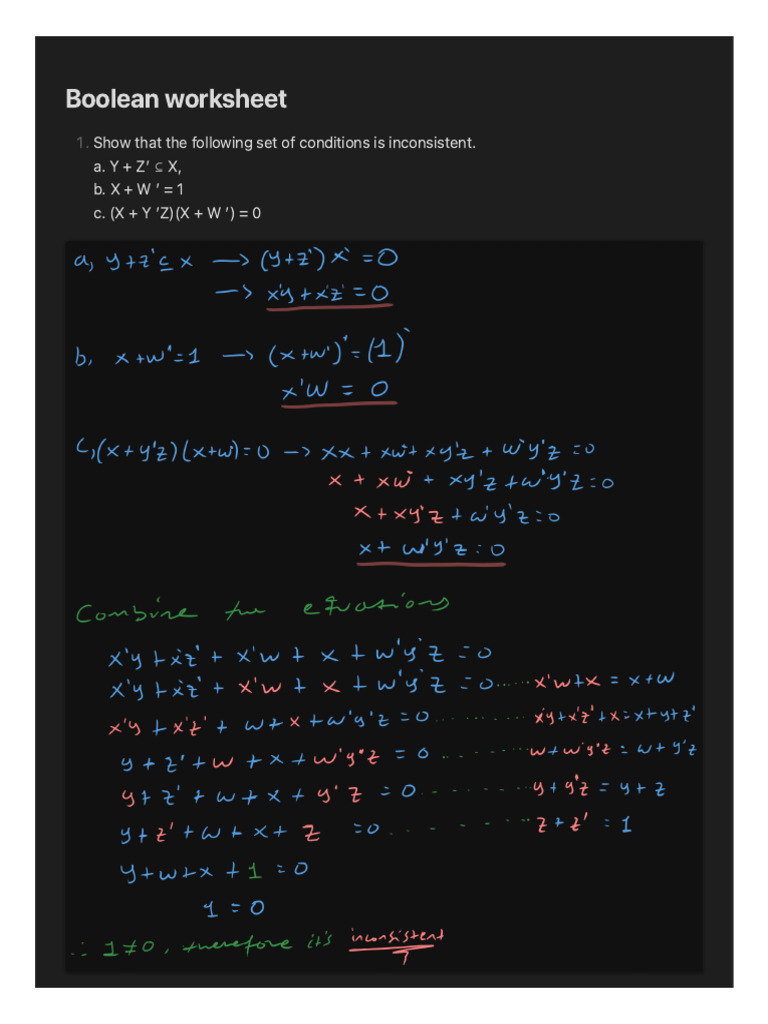 Boolean worksheet
1. Show that the following set of conditions is inconsistent.
a. Y + Z′ ⊆ X,
b. X + W ′ = 1
c. (X + Y ′Z)(X + W ′) = 0
a, y+z'⊆ x → (y+z') x' = 0
→ x'y + x'z' = 0
b, x+w'=1 → (x+w')' = (1)'
x'w = 0
c, (x+y'z) (x+w')=0 → xx + xw' + xy'z + w'y'z =0
x + xw' + xy'z + w'y'z =0
x + xy'z + w'y'z =0
x + w'y'z = 0
Combine the equations
x'y + x'z' + x'w + x + w'y'z = 0
x'y + x'z' + x'w + x + w'y'z = 0 ...... x'w+x = x+w
x'y + x'z' + w + x + w'y'z = 0 ........ x'y+x'z'+x = x+y+z'
y + z' + w + x + w'y'z = 0 ........ w+w'y'z = w+y'z
y + z' + w + x + y'z = 0 ........ y+y'z = y+z
y + z' + w + x + z = 0 ........ z+z' = 1
y+w+x +1 = 0
1 = 0
∴ 1≠0, therefore it's inconsistent